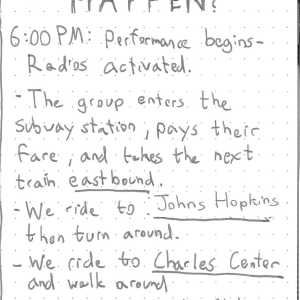 HAPPEN?
6:00 PM: Performance begins-
Radios activated.
- The group enters the
subway station, pays their
fare, and takes the next
train eastbound.
- We ride to Johns Hopkins
then turn around.
- We ride to Charles Center
and walk around